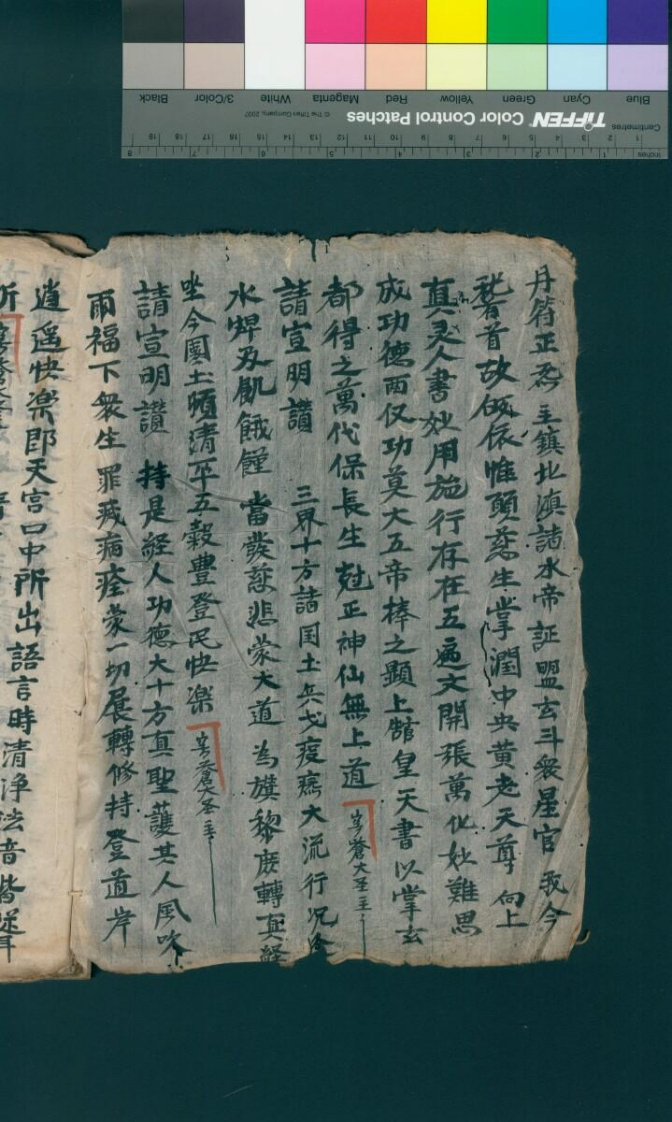 丹符正炁主鎮北滇諸水帝証盟玄斗衆星官 我今
稽首故皈依惟願慈生掌潤中央黄老天尊 向上
真灵人書妙用施行存在五遍文開張萬化妙難思
成功德而仅功莫大五帝棒之顯上舘皇天書以掌玄
都得之萬代保長生尅正神仙無上道 寥蒼大圣主
請宣明讃 三界十方諸国土兵戈疫癘大流行况
水焊及飢餓饉 當發慈悲蒙大道 為旗黎庶轉真経
坐今國土頃清平五穀豊登民快楽 寥蒼大圣主
請宣明讃 持是経人功德大十方真聖護其人風吹
雨福下衆生罪戒病痊蒙一切展轉修持登道岸
逍遥快楽郎天宫口中所出語言時清浄法音皆
Blue Cyan Green Yellow Red Magenta White 3/Color Black
Centimetres TIFFEN Color Control Patches © The Tiffen Company, 2007
Inches